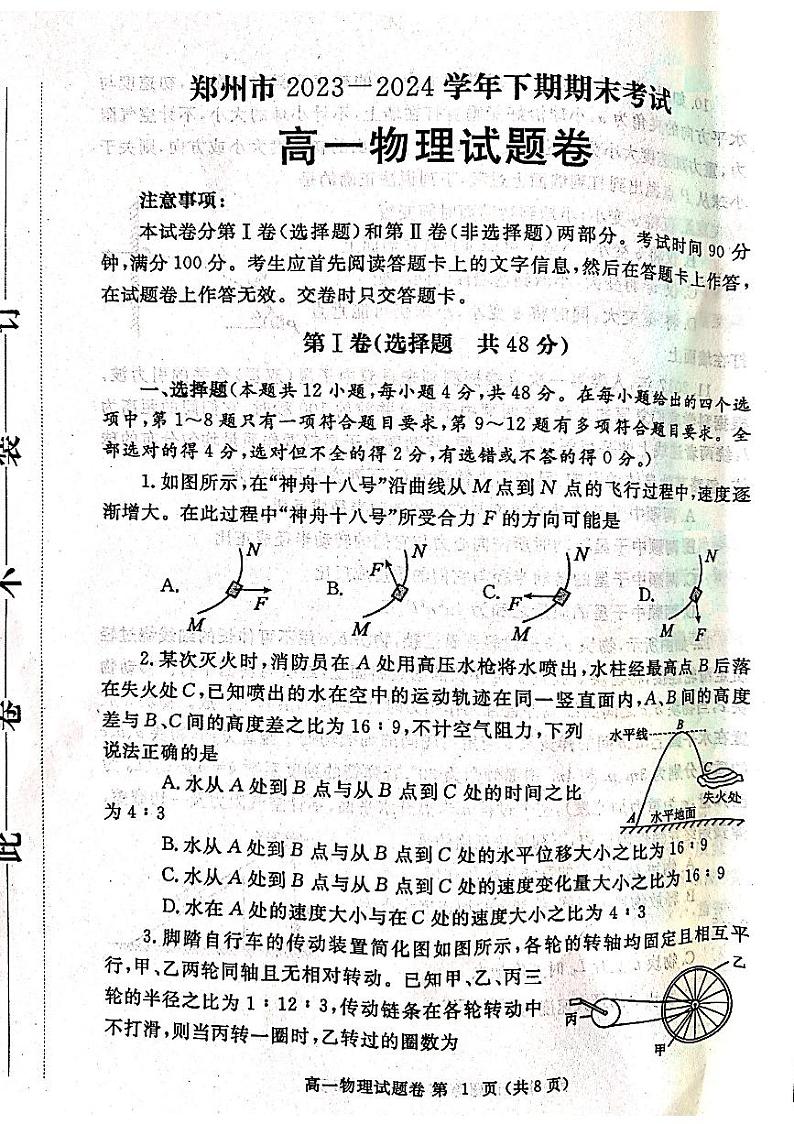 郑州市 2023—2024 学年下期期末考试
高一物理试题卷
注意事项：
本试卷分第Ⅰ卷(选择题)和第Ⅱ卷(非选择题)两部分。考试时间 90 分
钟,满分 100 分。考生应首先阅读答题卡上的文字信息,然后在答题卡上作答,
在试题卷上作答无效。交卷时只交答题卡。
第Ⅰ卷(选择题 共 48 分)
一、选择题(本题共 12 小题,每小题 4 分,共 48 分。在每小题给出的四个选
项中,第 1~8 题只有一项符合题目要求,第 9~12 题有多项符合题目要求。全
部选对的得 4 分,选对但不全的得 2 分,有选错或不答的得 0 分。)
1. 如图所示,在“神舟十八号”沿曲线从 M 点到 N 点的飞行过程中,速度逐
渐增大。在此过程中“神舟十八号”所受合力 F 的方向可能是
A. N F M
B. N F M
C. N F M
D. N F M
2. 某次灭火时,消防员在 A 处用高压水枪将水喷出,水柱经最高点 B 后落
在失火处 C,已知喷出的水在空中的运动轨迹在同一竖直面内,A、B 间的高度
差与 B、C 间的高度差之比为 16∶9,不计空气阻力,下列
说法正确的是
水平线 B
C
失火处
A 水平地面
A. 水从 A 处到 B 点与从 B 点到 C 处的时间之比
为 4∶3
B. 水从 A 处到 B 点与从 B 点到 C 处的水平位移大小之比为 16∶9
C. 水从 A 处到 B 点与从 B 点到 C 处的速度变化量大小之比为 16∶9
D. 水在 A 处的速度大小与在 C 处的速度大小之比为 4∶3
3. 脚踏自行车的传动装置简化图如图所示,各轮的转轴均固定且相互平
行,甲、乙两轮同轴且无相对转动。已知甲、乙、丙三
轮的半径之比为 1∶12∶3,传动链条在各轮转动中
不打滑,则当丙转一圈时,乙转过的圈数为
乙
丙
甲
高一物理试题卷 第 1 页 (共 8 页)
订
装
不
卷
此